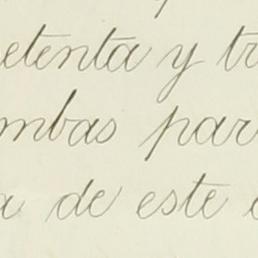 etenta y tr
mbas par
a de este